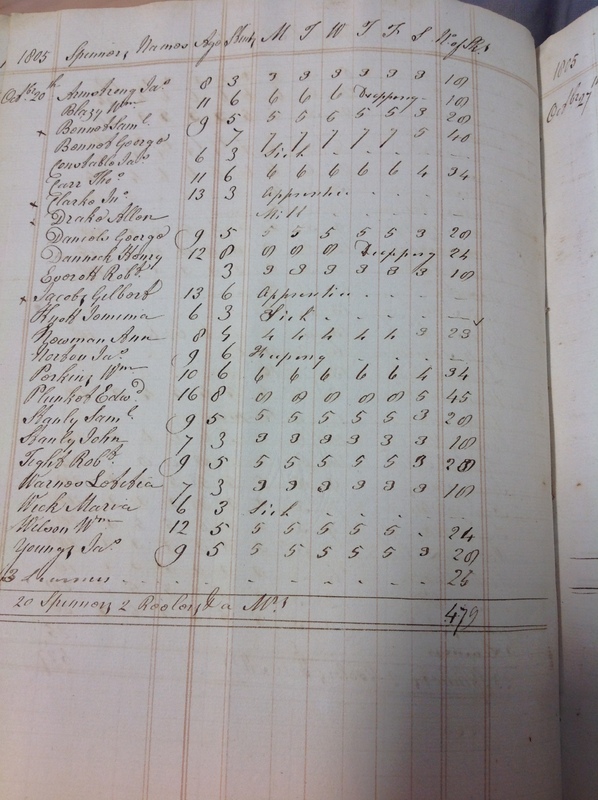 1805 Spinners Names Age Stent M T W T F S N° of Sks
Octbr 20th Armstrong Jas 8 3 3 3 3 3 3 3 18
Blazy Wm 11 6 6 6 6 Dropping 18
Bennet Saml 9 5 5 5 5 5 5 3 28
x Bennet George 7 7 7 7 7 7 5 40
Constable Jas 6 3 Sick - - - -
Carr Thos 11 6 6 6 6 6 6 4 34
x Clarke Jno 13 3 Apprentice - - -
x Drake Allen Mill
Daniels George 9 5 5 5 5 5 5 3 28
Dannock Henry 12 8 8 8 8 Dropping 24
Everett Robt 3 3 3 3 3 3 3 18
x Jacobs Gilbert 13 6 Apprentice - - -
Kyatt Jemima 6 3 Sick - - - -
Newman Ann 8 4 4 4 4 4 4 3 23
Norton Jas 9 6 - - - -
Perkins Wm 10 6 6 6 6 6 6 4 34
Plunket Edwd 16 8 8 8 8 8 8 5 45
Stanly Saml 9 5 5 5 5 5 5 3 28
Stanly John 7 3 3 3 3 3 3 3 18
Tight Robt 9 5 5 5 5 5 5 3 28
Warnes Letitia 7 3 3 3 3 3 3 3 18
Wick Maria 6 3 Sick - - - -
Wilson Wm 12 5 5 5 5 5 5 - 24
Youngs Jas 9 5 5 5 5 5 5 3 28
3 - - - - - - - - 25
20 Spinners, 2 Reelers, & a Mrs 479
1805
Octbr 27